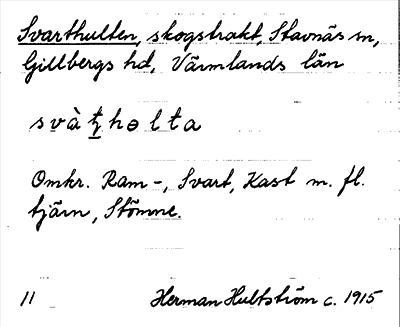 Svarthulten, skogstrakt, Stavnäs sn,
Gillbergs hd, Värmlands län
Omkr. Ram-, Svart, Kast m. fl.
tjärn, Stömne.
11 Herman Hultström c. 1915